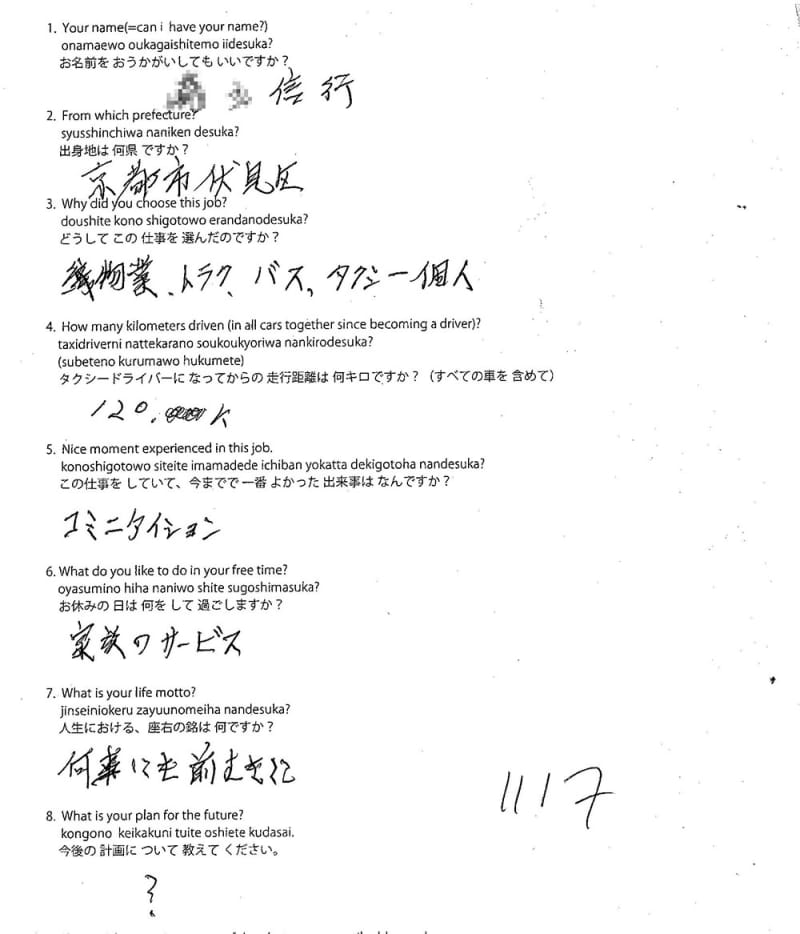 1. Your name(=can i have your name?)
onamaewo oukagaishitemo iidesuka?
お名前を おうかがいしても いいですか？
信行
2. From which prefecture?
syusshinchiwa naniken desuka?
出身地は 何県 ですか？
京都市伏見区
3. Why did you choose this job?
doushite kono shigotowo erandanodesuka?
どうして この 仕事を 選んだのですか？
物業、トラク、バス、タクシー個人
4. How many kilometers driven (in all cars together since becoming a driver)?
taxidriverni nattekarano soukoukyoriwa nankirodesuka?
(subeteno kurumawo hukumete)
タクシードライバーに なってからの 走行距離は 何キロですか？（すべての車を 含めて）
120.
5. Nice moment experienced in this job.
konoshigotowo siteite imamadede ichiban yokatta dekigotoha nandesuka?
この仕事を していて、今までで 一番 よかった 出来事は なんですか？
コミニタイション
6. What do you like to do in your free time?
oyasumino hiha naniwo shite sugoshimasuka?
お休みの 日は 何を して 過ごしますか？
家族のサービス
7. What is your life motto?
jinseiniokeru zayuunomeiha nandesuka?
人生における、座右の銘は 何ですか？
何事にも前むきに
1117
8. What is your plan for the future?
kongono keikakuni tuite oshiete kudasai.
今後の 計画に ついて 教えて ください。
?